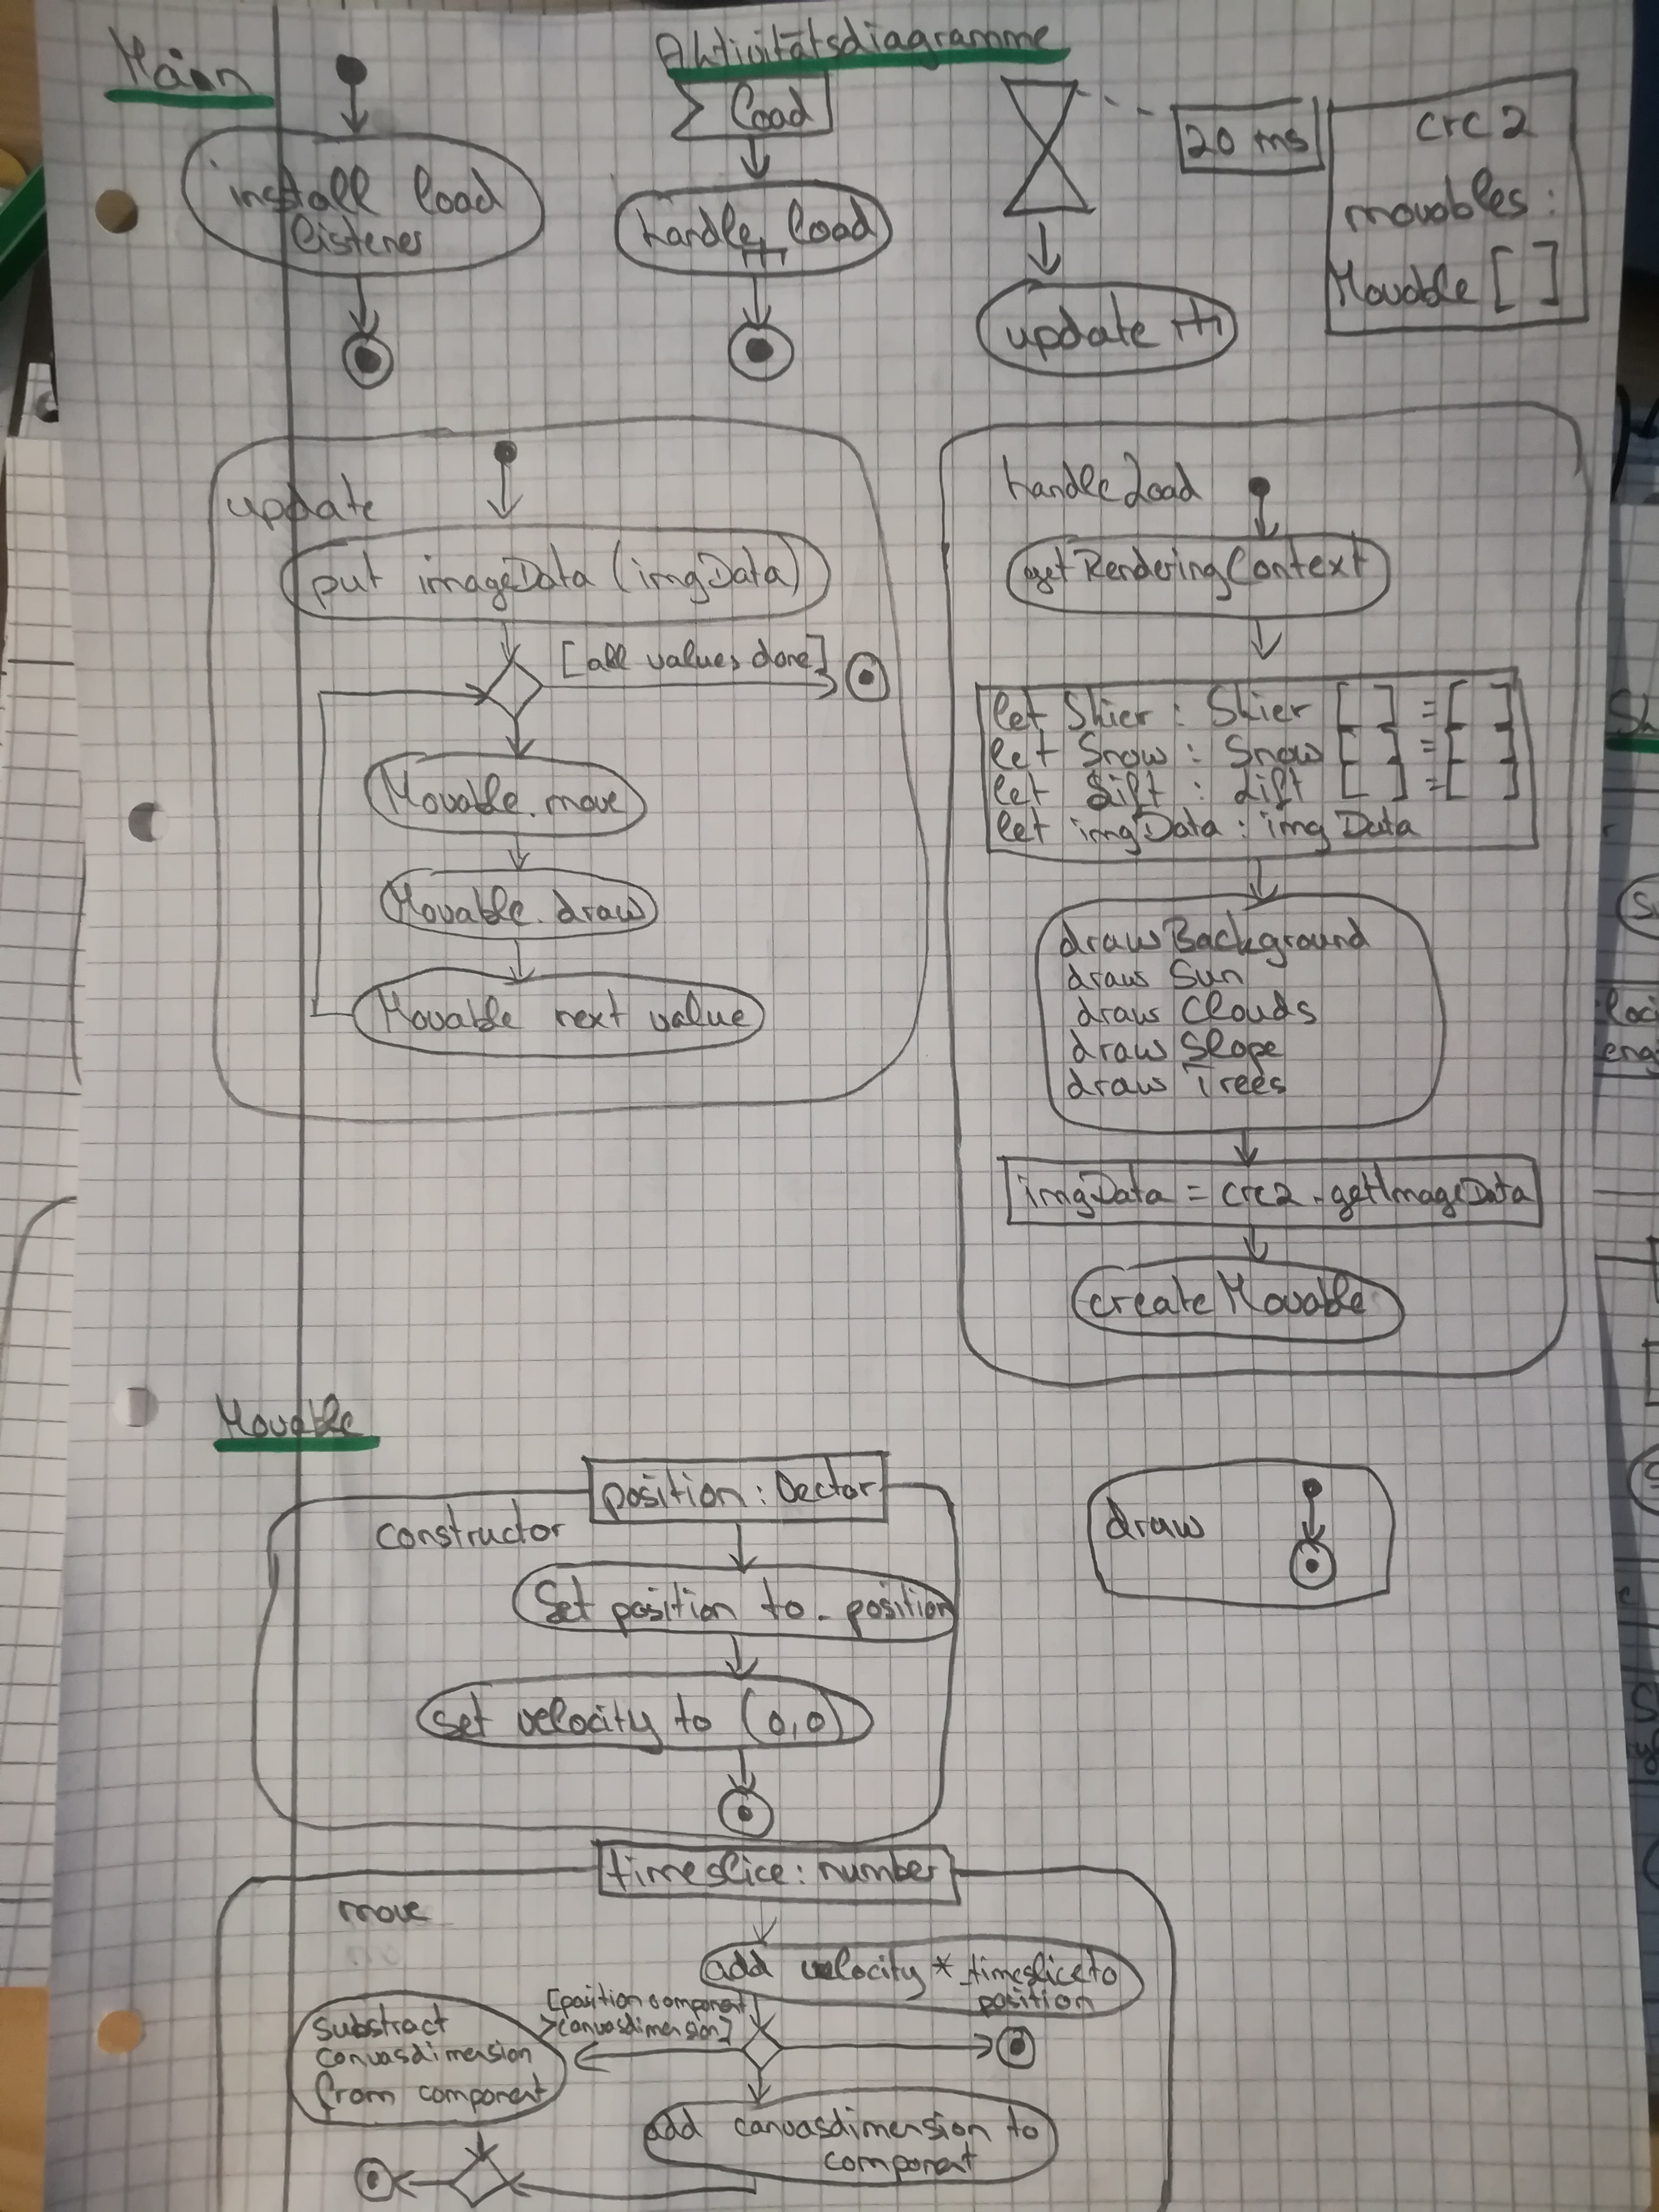 Aktivitätsdiagramme
Main
install load
listener
load
handle load
20 ms
update
crc 2
movables:
Movable []
update
put imageData (imgData)
[all values done]
Movable.move
Movable.draw
Movable next value
handleLoad
getRenderingContext
let Skier : Skier [ ] = [ ]
let Snow : Snow [ ] = [ ]
let Lift : Lift [ ] = [ ]
let imgData : img Data
draw Background
draw Sun
draw Clouds
draw Slope
draw Trees
imgData = crc2.getImageData
create Movable
Movable
position : Vector
constructor
Set position to _position
set velocity to (0,0)
draw
timeslice : number
move
add velocity * _timeslice to
position
[position component
>canvasdimension]
substract
canvasdimension
from component
add canvasdimension to
component